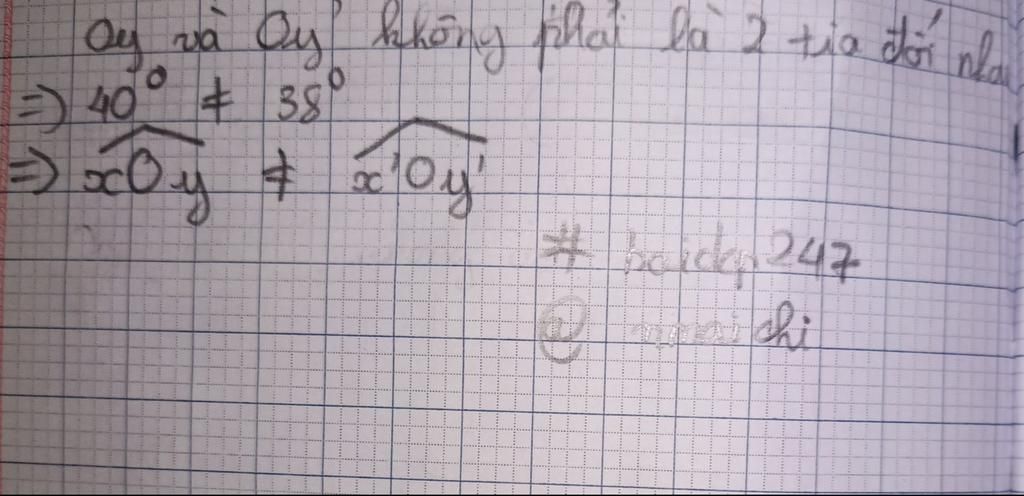 Oy và Oy' không phải là 2 tia đối nha
=> 40° ≠ 38°
=> xOy ≠ x'Oy'
# hoidap247
@ chi